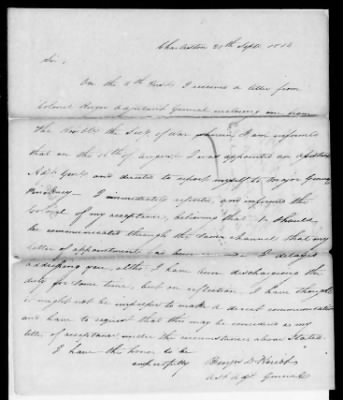 Charleston 20th Sept. 1814
Sir,
On the 8th Inst. I received a letter from
Colonel Adjutant General inclosing one from
The Honble the Secy of War wherein I am informed
that on the of August I was appointed an assistant
Adjt Genl and directed to report myself to Major General
Pinckney — I immediately reported, and informed the
Colonel of my acceptance, believing that it should
be communicated through the same channel that my
letter of appointment has been I delayed
addressing you, altho I have been discharging the
duty for some time, but on reflection I have thought
it might not be improper to make a direct communication
and have to request that this may be considered as my
letter of acceptance under the circumstances above stated.
I have the honor to be
respectfully
Asst Adjt General